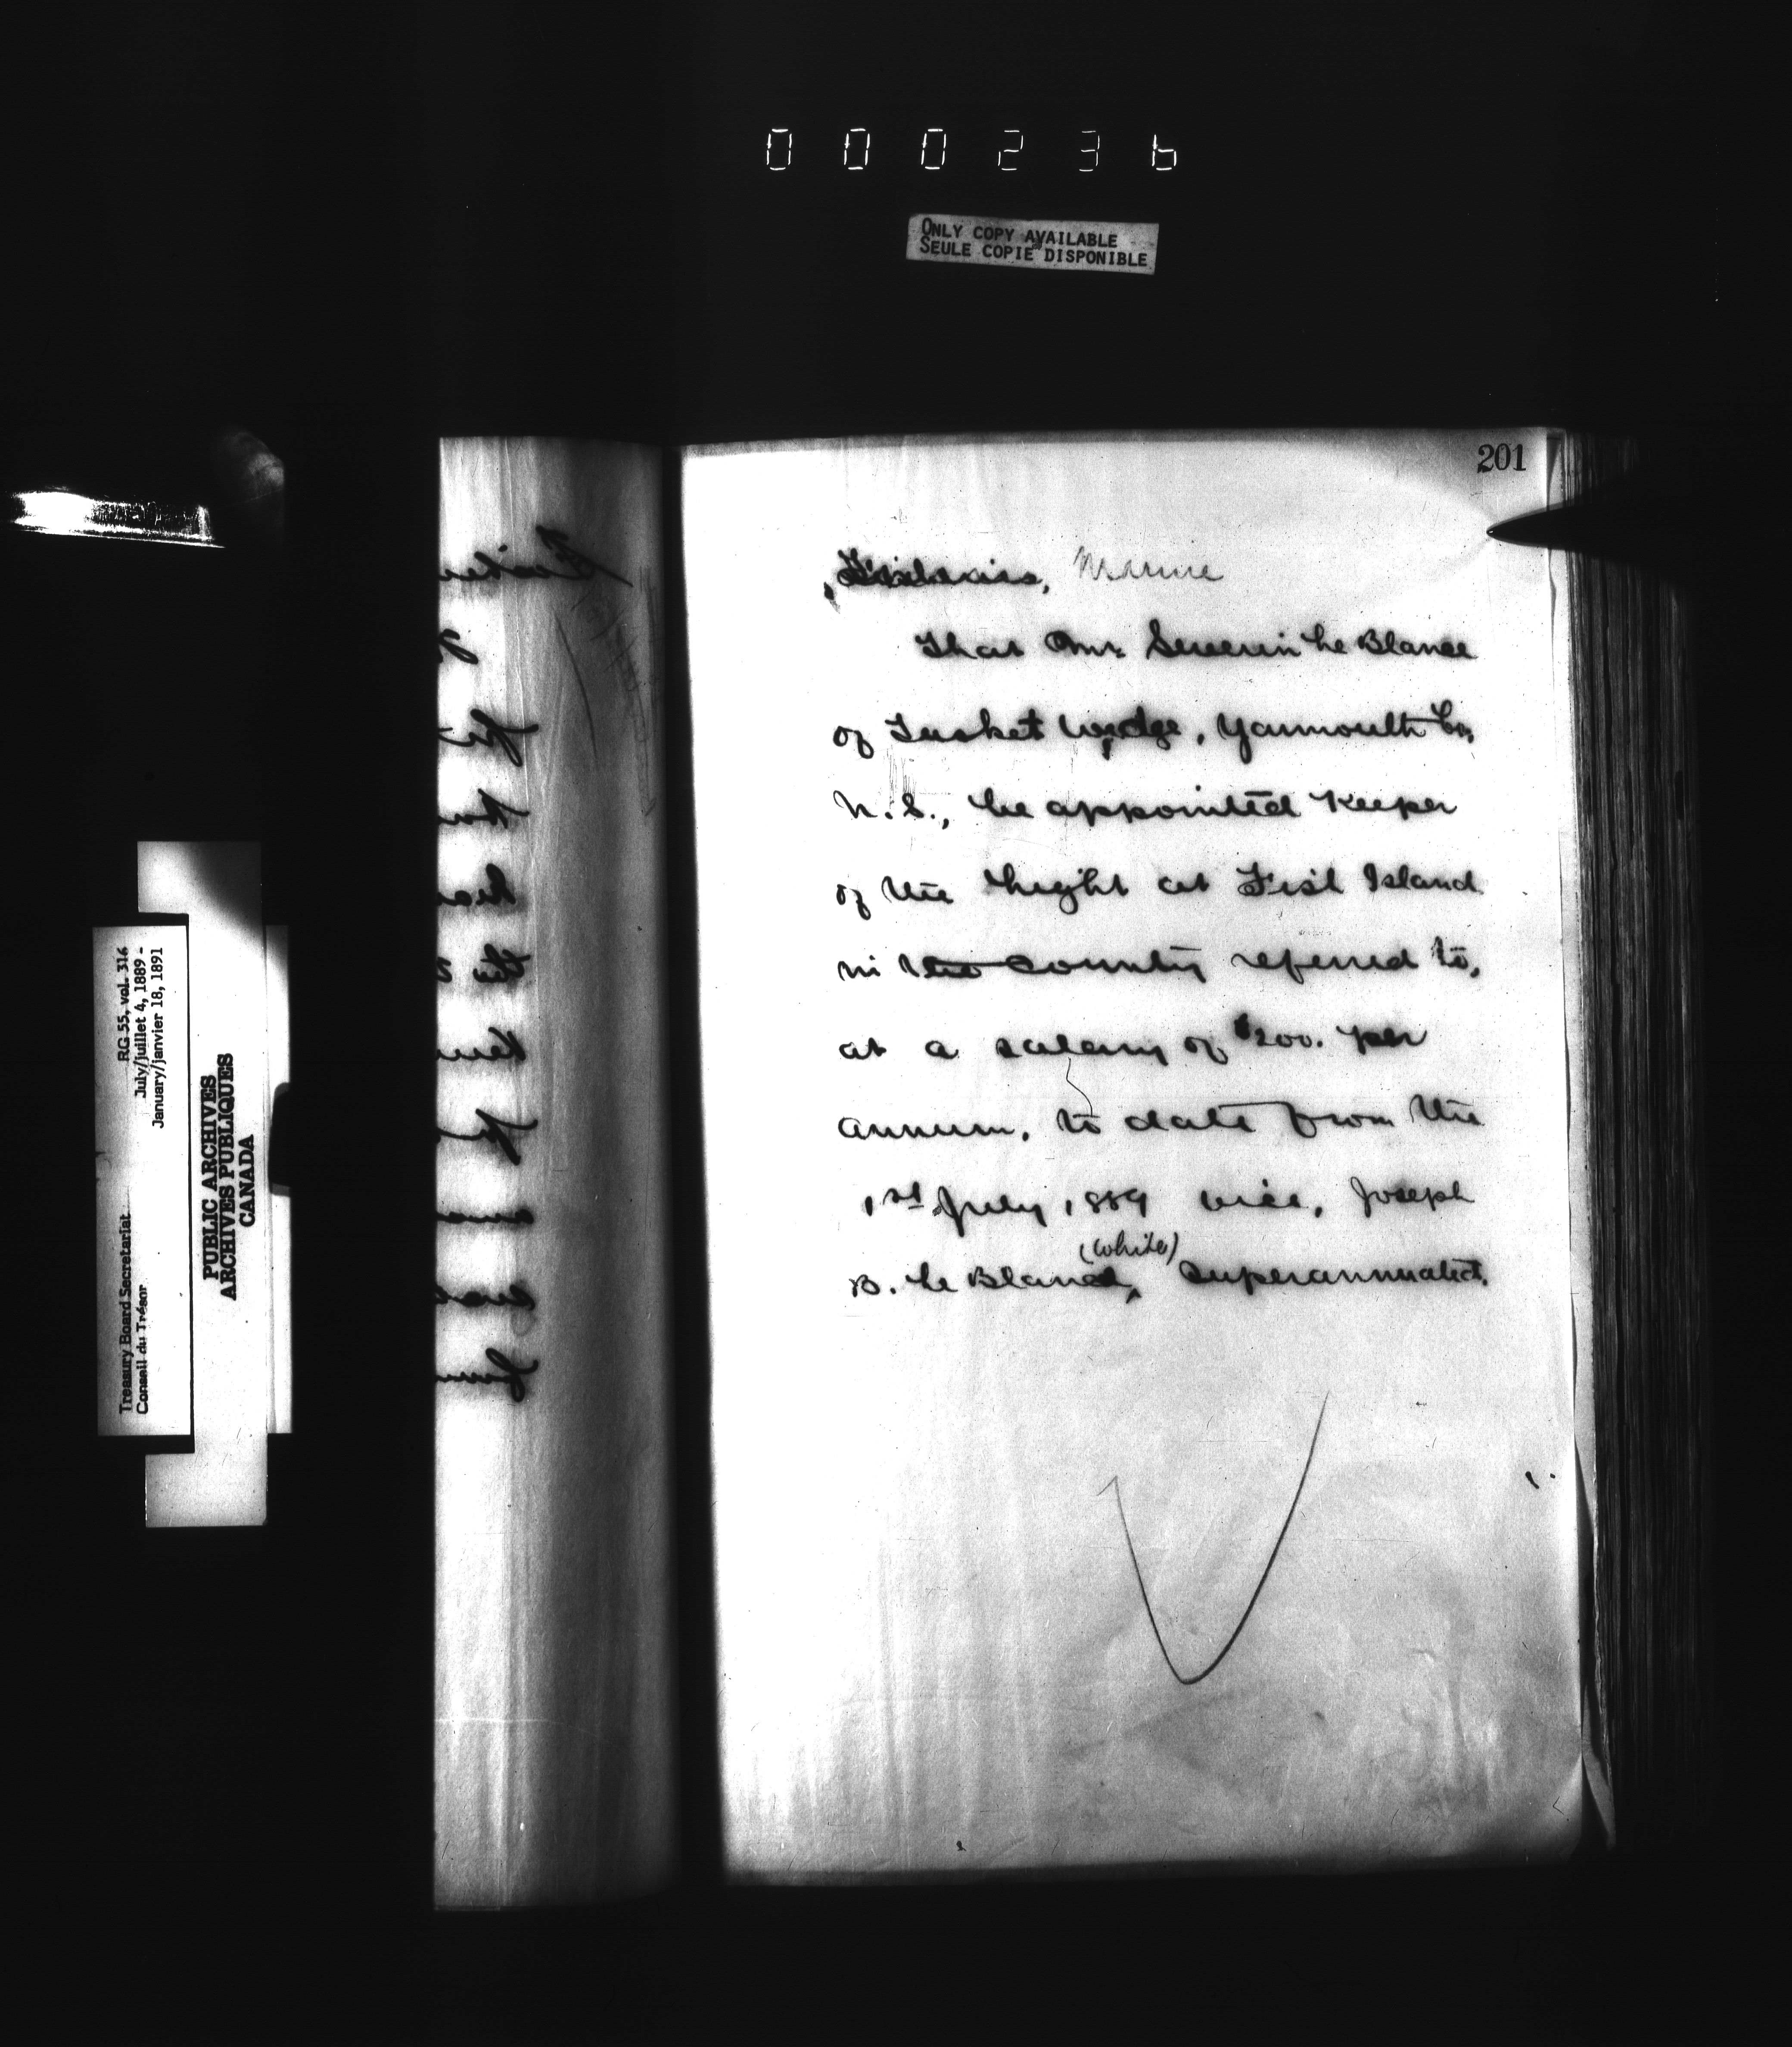 000236
ONLY COPY AVAILABLE
SEULE COPIE DISPONIBLE
201
Fisheries, Marine
That Mr. Severin Le Blanc
of Tusket Wedge, Yarmouth Co.
N.S., be appointed Keeper
of the Light at Fish Island
in the County referred to,
at a salary of $200. per
annum, to date from the
1st July, 1889 vice, Joseph
(White)
B. Le Blanc, Superannuated.
Treasury Board Secretariat RG 55, vol. 316
Conseil du Trésor July/juillet 4, 1889 -
January/janvier 18, 1891
PUBLIC ARCHIVES
ARCHIVES PUBLIQUES
CANADA